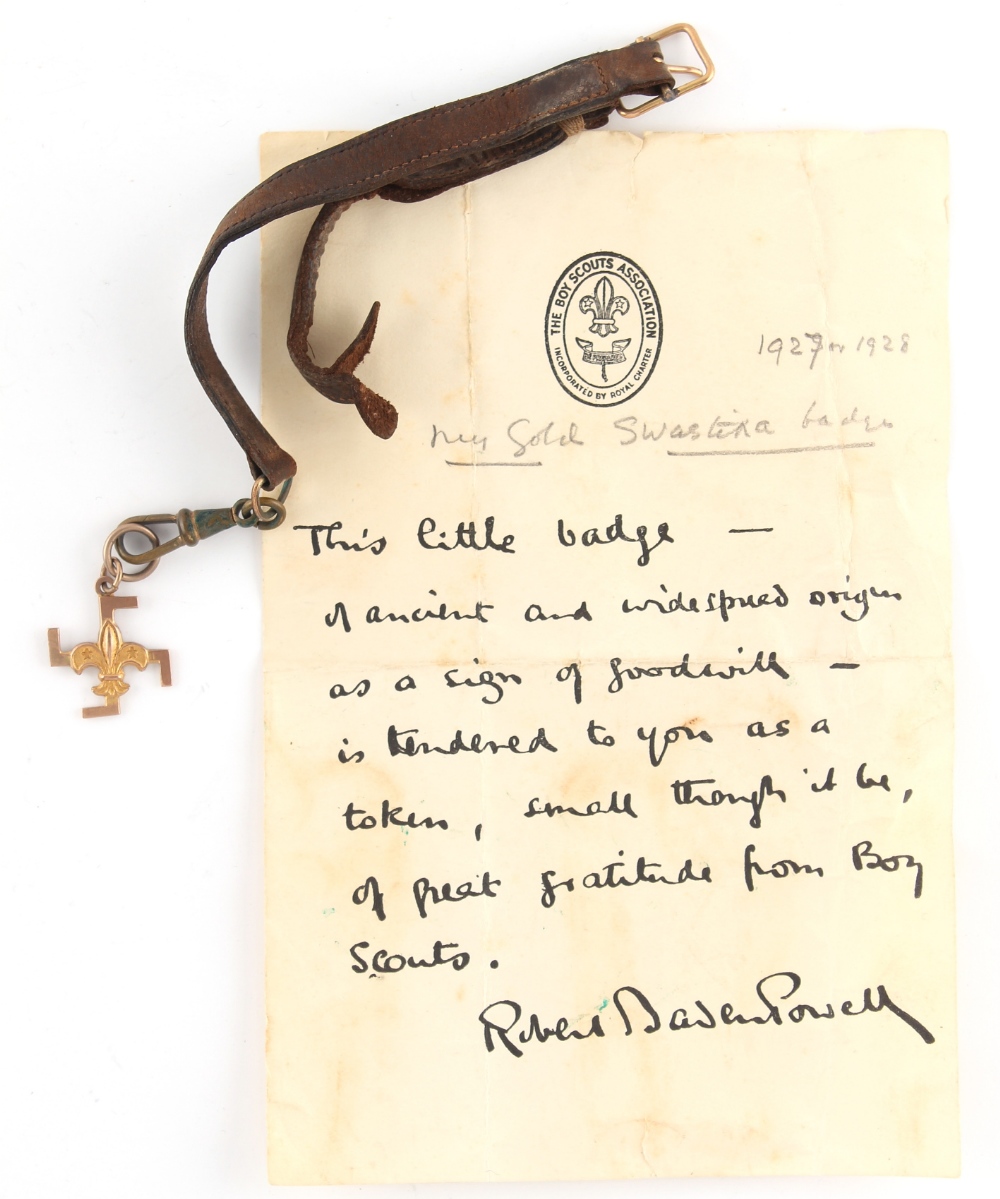 THE BOY SCOUTS ASSOCIATION
INCORPORATED BY ROYAL CHARTER
1927 or 1928
my Gold Swastika badge
This little badge —
of ancient and widespread origin
as a sign of goodwill —
is tendered to you as a
token, small though it be,
of great gratitude from Boy
Scouts.
Robert Baden Powell